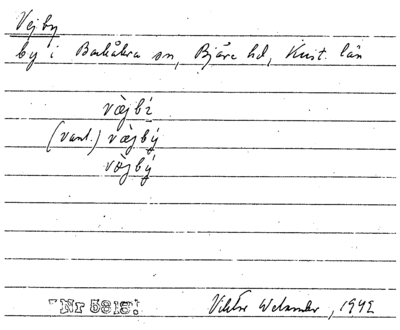 Vejby
by i Barkåkra sn, Bjäre hd, Krist. län
væ̀jbí
(vanl.) væ̀jbý
væ̀jbý
Nr 5818
Viktor 1942